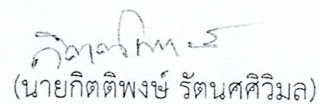 (นายกิตติพงษ์ รัตนศศิวิมล)